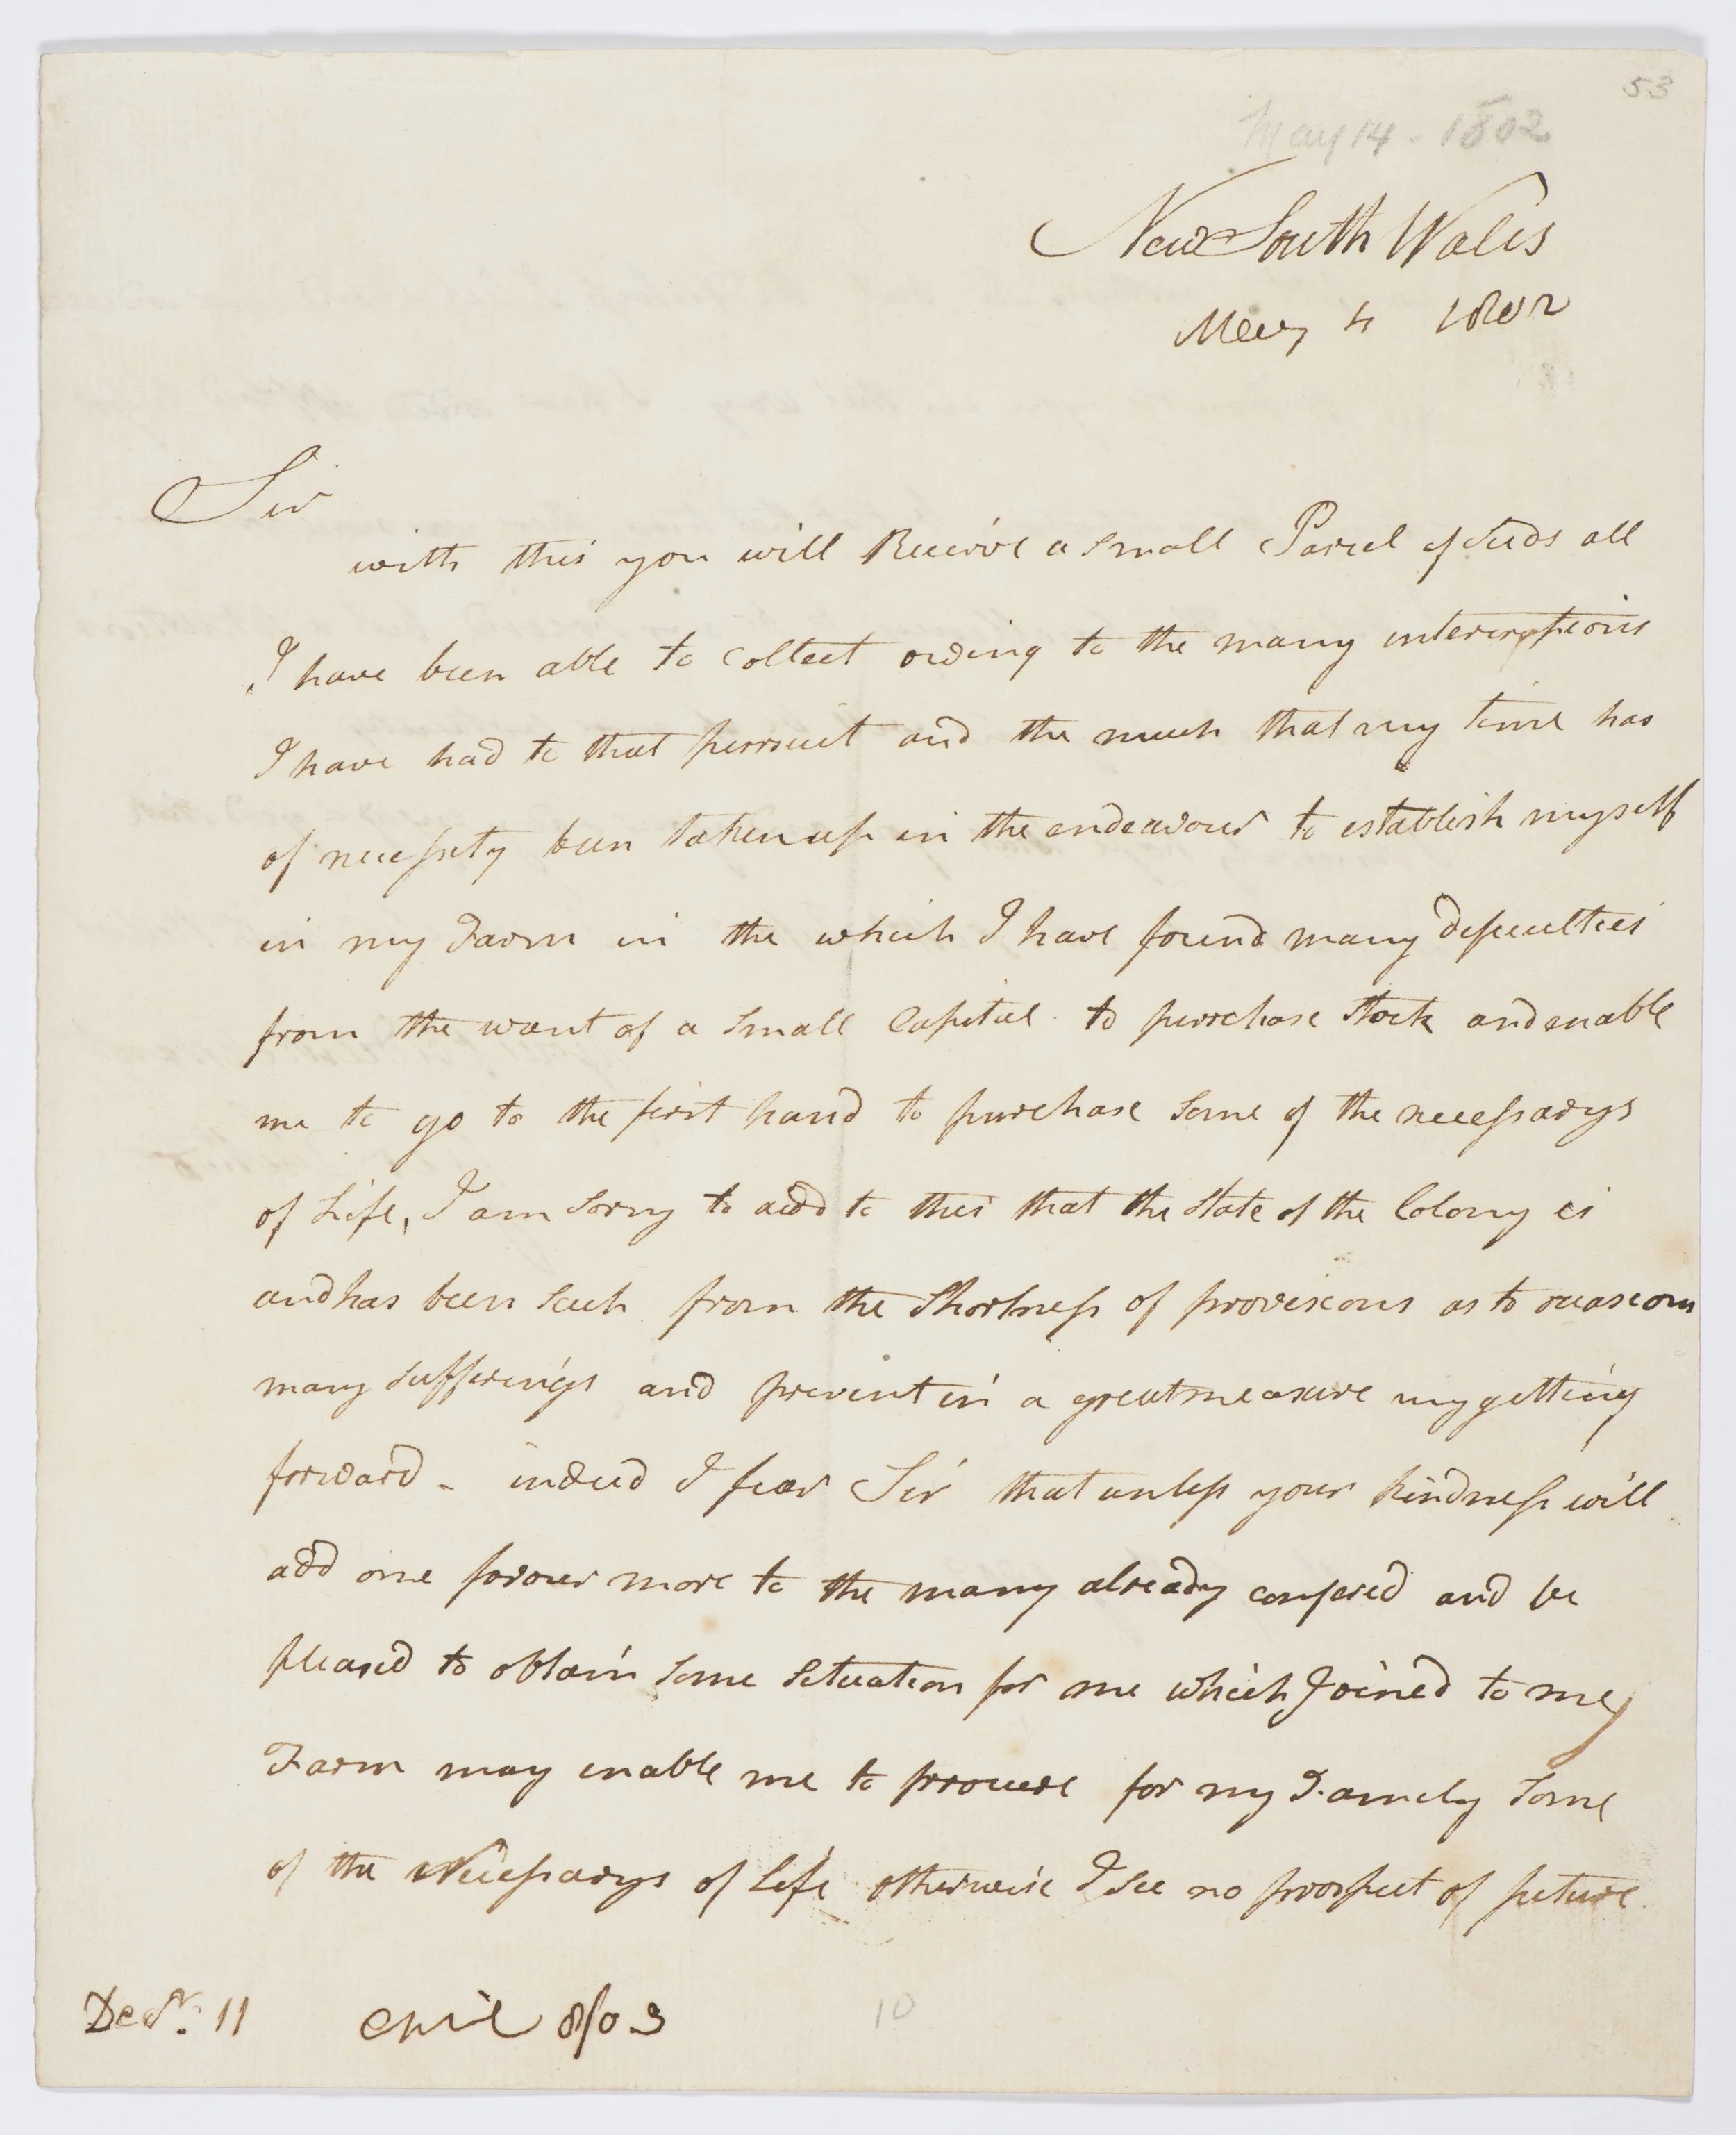 53
May 14 - 1802
New South Wales
May 4 1802
Sir
with this you will Receive a small Parcel of Seeds all
I have been able to Collect owing to the many interruptions
I have had to that persuit and the much that my time has
of necessity been taken up in the endeavour to establish myself
in my Farm in the which I have found many dificulties
from the want of a small Capital to purchase Stock and enable
me to go to the first hand to purchase some of the necessarys
of Life, I am sorry to add to this that the State of the Colony is
and has been such from the Shortness of provisions as to occasion
many sufferings and prevent in a great measure my getting
forward - indeed I fear Sir that unless your kindness will
add one favour more to the many already confered and be
pleased to obtain some Situation for me which Joined to my
Farm may enable me to procure for my Family Some
of the Necessarys of Life otherwise I see no prospect of future
Decr. 11 April 8/03
10